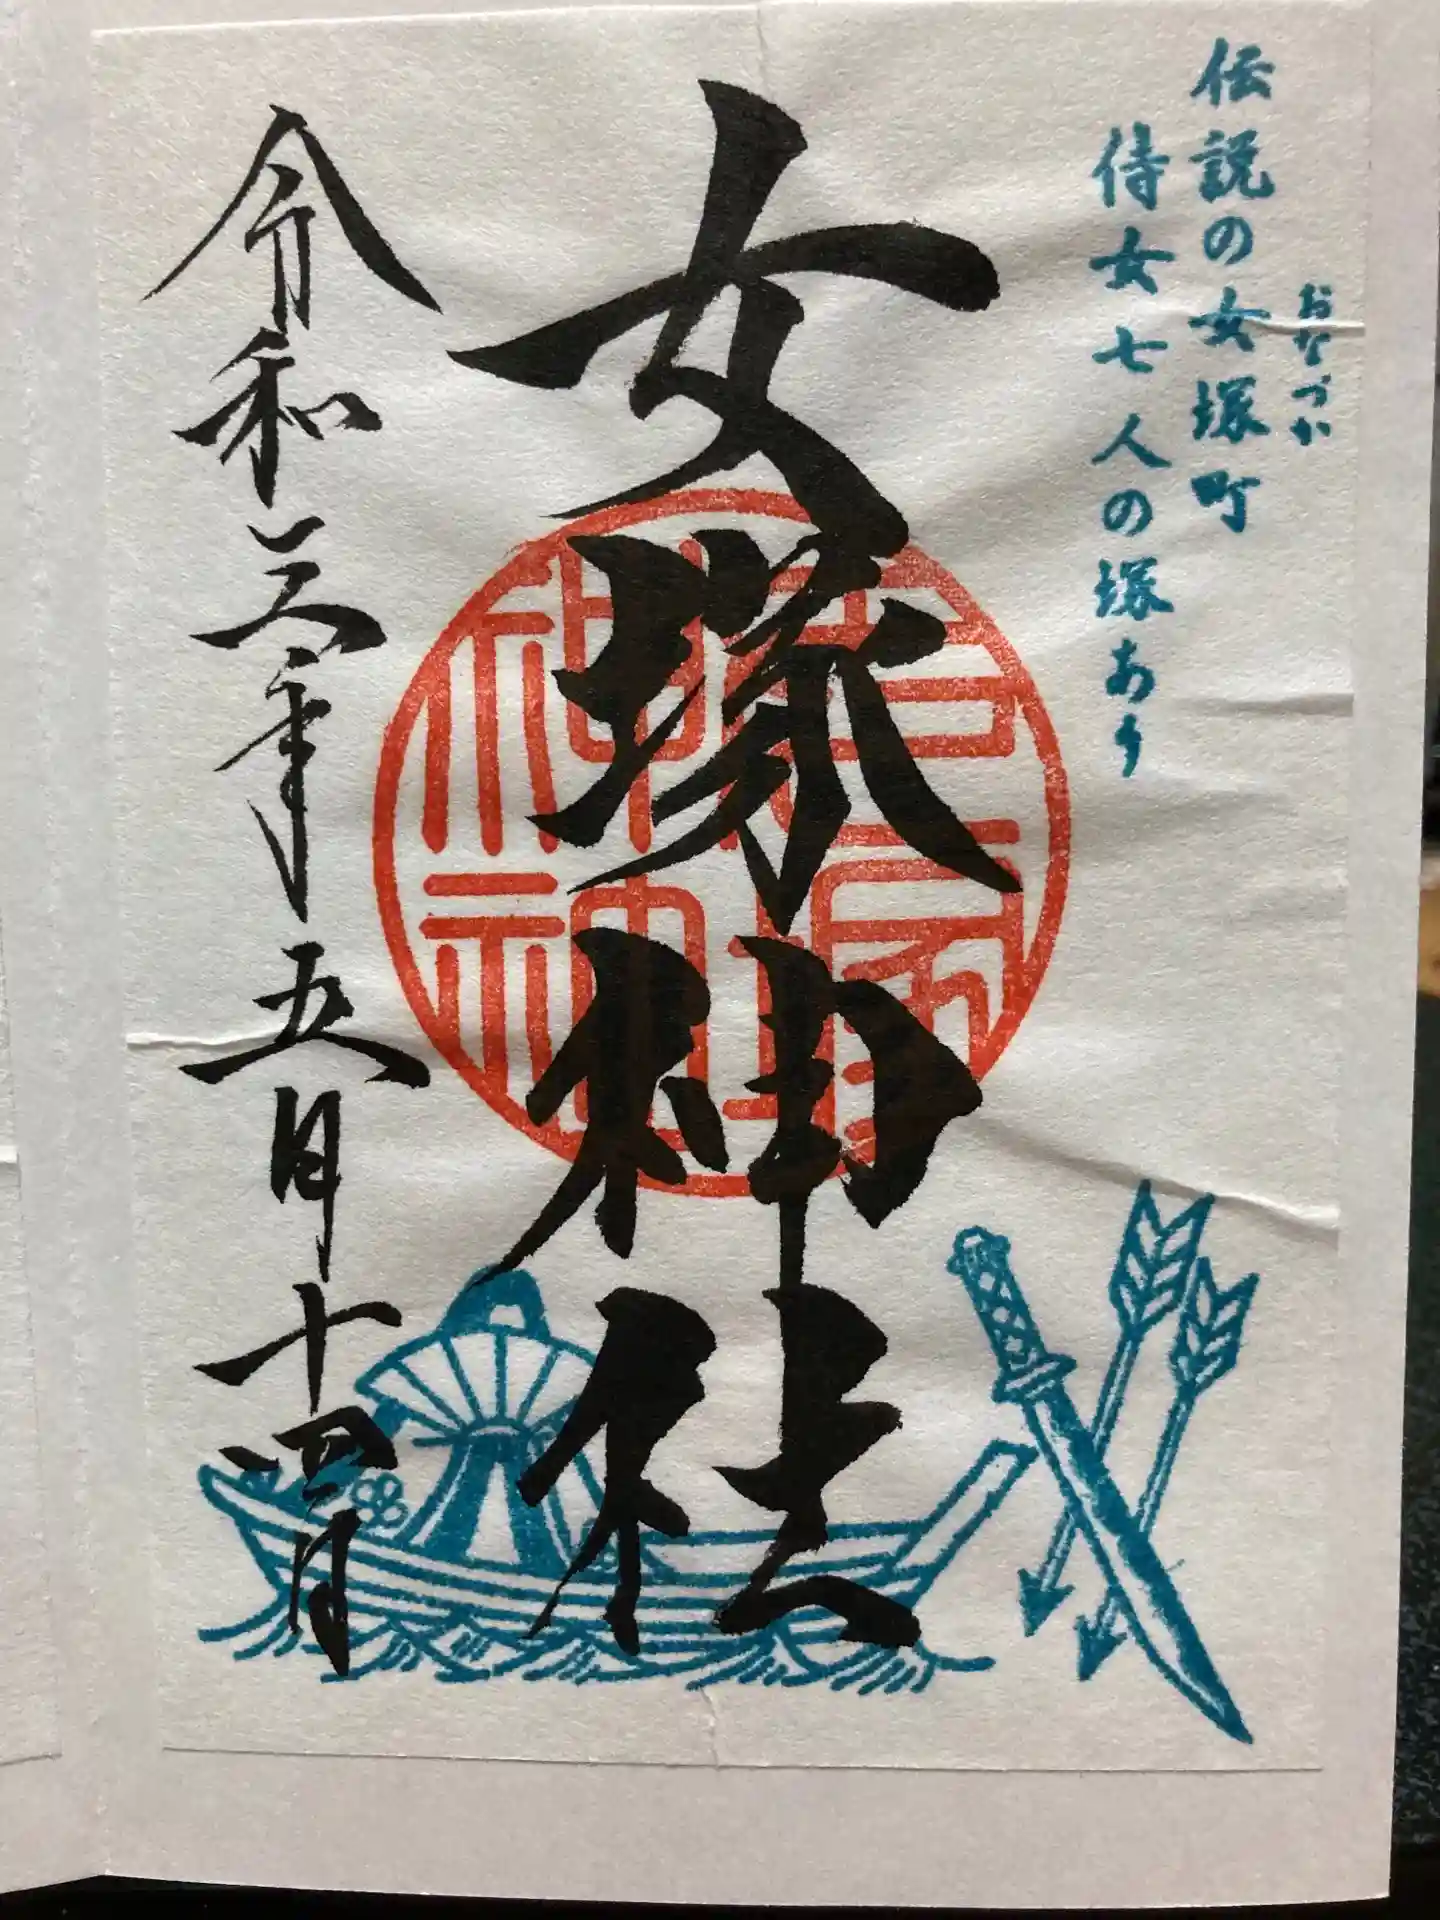 おなづか
伝説の女塚町
侍女七人の塚あり
女塚神社
令和三年五月十四日